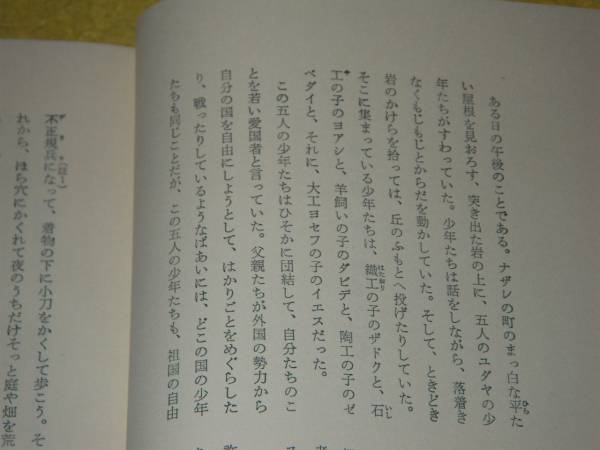 ある日の午後のことである。ナザレの町のまっ白な平た
い屋根を見おろす、突き出た岩の上に、五人のユダヤの少
年たちがすわっていた。少年たちは話をしながら、落着き
なくもじもじとからだを動かしていた。そして、ときどき
岩のかけらを拾っては、丘のふもとへ投げたりしていた。
そこに集まっている少年たちは、織工の子のザドクと、石
工の子のヨアシと、羊飼いの子のダビデと、陶工の子のゼ
ベダイと、それに、大工ヨセフの子のイエスだった。
この五人の少年たちはひそかに団結して、自分たちのこ
とを若い愛国者と言っていた。父親たちが外国の勢力から
自分の国を自由にしようとして、はかりごとをめぐらした
り、戦ったりしているようなばあいには、どこの国の少年
たちも同じことだが、この五人の少年たちも、祖国の自由
不正規兵になって、着物の下に小刀をかくして歩こう。そ
れから、ほら穴にかくれて夜のうちだけそっと庭や畑を荒